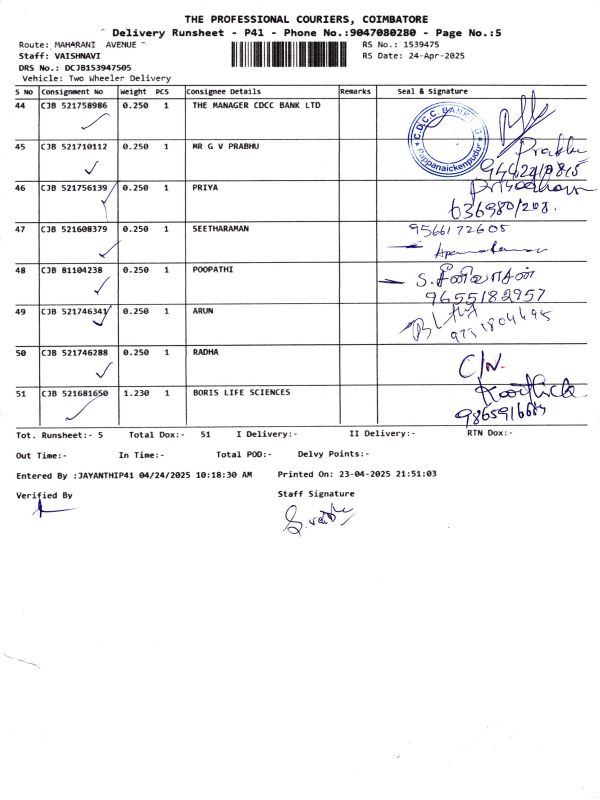 THE PROFESSIONAL COURIERS, COIMBATORE
Delivery Runsheet - P41 - Phone No.:9047080280 - Page No.:5
Route: MAHARANI AVENUE
RS No.: 1539475
Staff: VAISHNAVI
RS Date: 24-Apr-2025
DRS No.: DCJB153947505
Vehicle: Two Wheeler Delivery
S No Consignment No Weight PCS Consignee Details Remarks Seal & signature
44 CJB 521758986 0.250 1 THE MANAGER CDCC BANK LTD
C.D.C.C. BANK LTD
Pappanaickenpudur
45 CJB 521710112 0.250 1 MR G V PRABHU
Prabhu
46 CJB 521756139 0.250 1 PRIYA
47 CJB 521608379 0.250 1 SEETHARAMAN
9566172605
48 CJB 81104238 0.250 1 POOPATHI
S. சீனிவாசன்
9655182957
49 CJB 521746341 0.250 1 ARUN
50 CJB 521746288 0.250 1 RADHA
C/N.
51 CJB 521681650 1.230 1 BORIS LIFE SCIENCES
Tot. Runsheet:- 5 Total Dox:- 51 I Delivery:- II Delivery:- RTN Dox:-
Out Time:- In Time:- Total POD:- Delvy Points:-
Entered By :JAYANTHIP41 04/24/2025 10:18:30 AM Printed On: 23-04-2025 21:51:03
Verified By Staff Signature